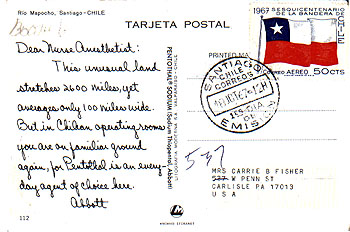 Río Mapocho, Santiago-CHILE
TARJETA POSTAL
1967 SESQUICENTENARIO
DE LA BANDERA DE CHILE
Dear Nurse Anesthetist:
This unusual land
stretches 2600 miles, yet
averages only 100 miles wide.
But in Chilean operating rooms
you are on familiar ground
again, for Pentothal is an every-
day agent of choice here.
Abbott
112
PENTOTHAL® SODIUM
(Sodium Thiopental, Abbott)
PRINTED MA
CORREO AEREO 50 CTS
SANTIAGO
CHILE
CORREOS
1er DIA
DE
EMISION
537
MRS CARRIE B FISHER
537 W PENN ST
CARLISLE PA 17013
U S A